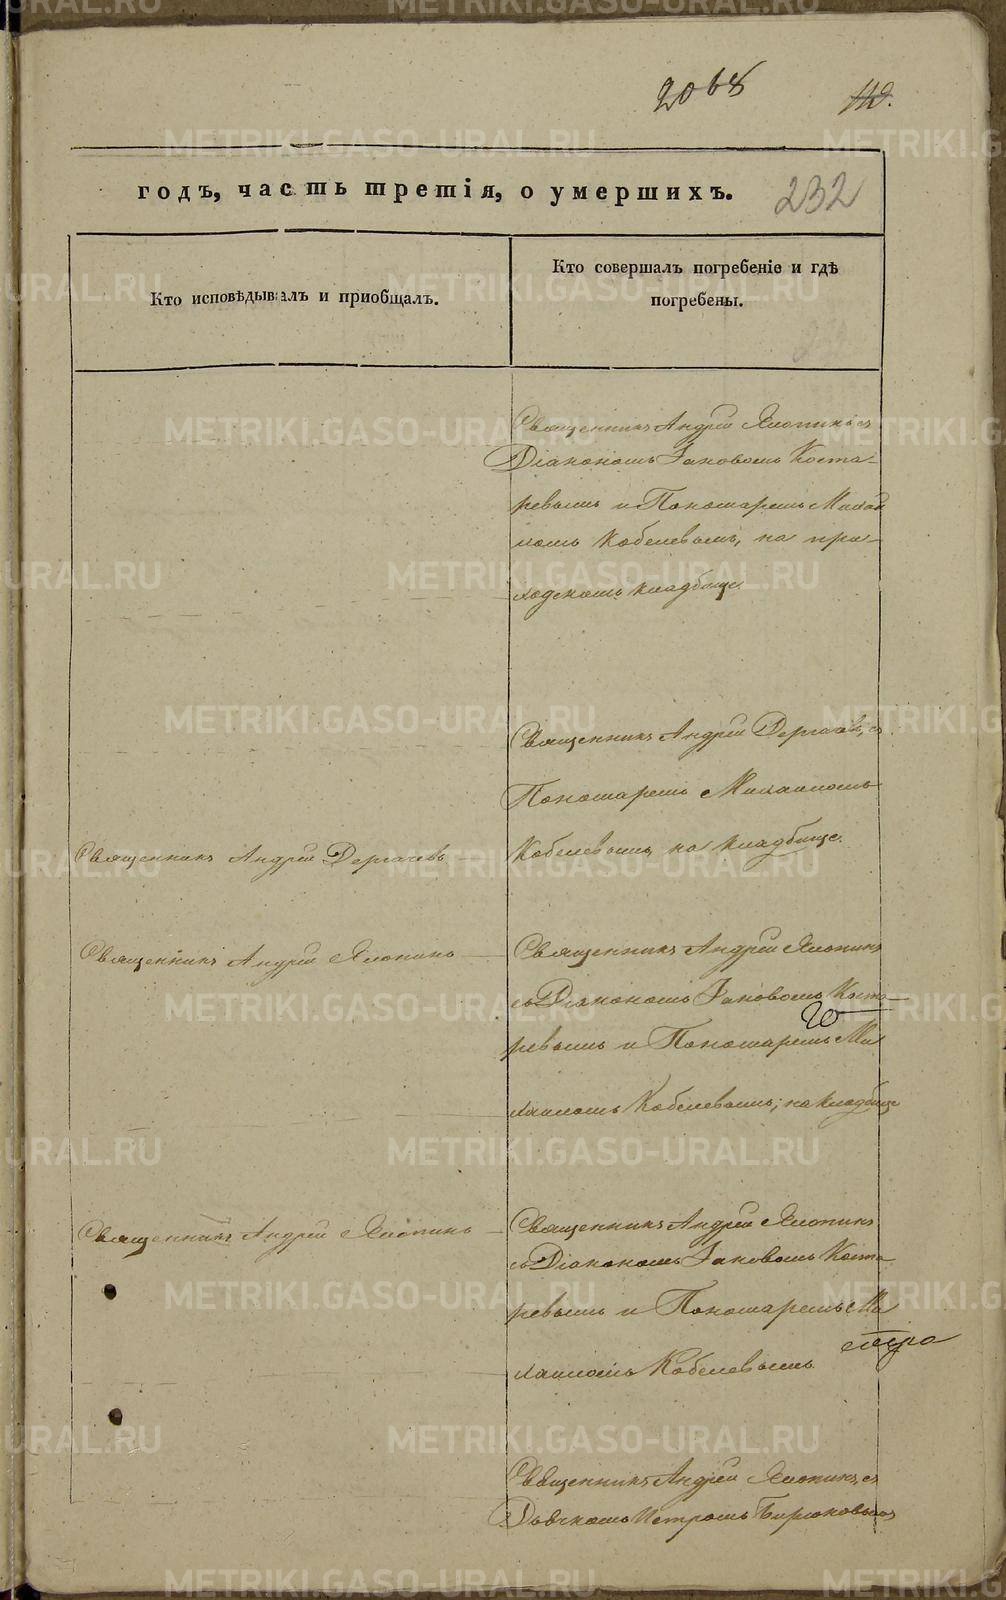 2068
112.
годъ, часть третія, о умершихъ.
232
Кто исповѣдывалъ и приобщалъ.
Кто совершалъ погребеніе и гдѣ
погребены.
Священникъ Андрей Яжопинъ съ
Діакономъ Іаковомъ Коста-
ревымъ и Пономаремъ Михаи
ломъ Кобелевымъ, на при-
ходскомъ кладбище.
Священникъ Андрей Дергачевъ, съ
Пономаремъ Михаиломъ
Кобелевымъ, на кладбище.
Священникъ Андрей Дергачевъ
Священникъ Андрей
Священникъ Андрей
съ Діакономъ Іаковомъ Коста
20
ревымъ и Пономаремъ Ми
хаиломъ Кобелевымъ; на кладбище
Священникъ Андрей
Священникъ Андрей
съ Діакономъ Іаковомъ Коста
ревымъ и Пономаремъ Ми
хаиломъ Кобелевымъ
Священникъ Андрей съ
Дьячкомъ Петромъ Бирюковымъ
METRIKI.GASO-URAL.RU